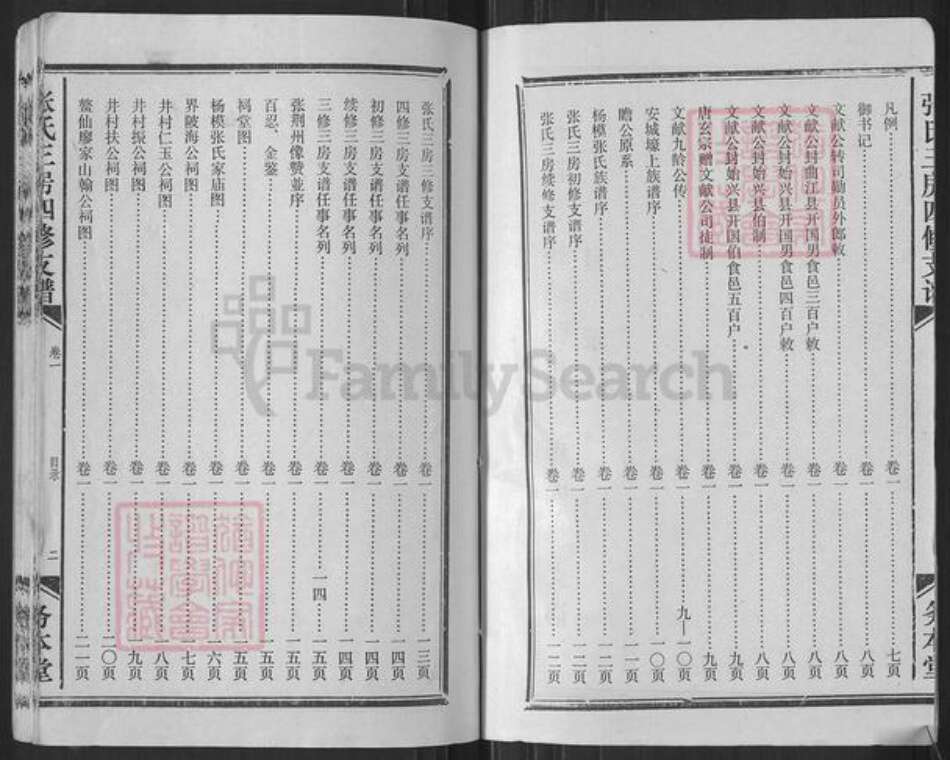 张氏三房四修支谱
务本堂
凡例 卷一 七页
御书记 卷一 八页
文献公转司勋员外郎敕 卷一 八页
文献公封曲江县开国男食邑三百户敕 卷一 八页
文献公封始兴县开国男食邑四百户敕 卷一 八页
文献公封始兴县伯制 卷一 八页
文献公封始兴县开国伯食邑五百户 卷一 九页
唐玄宗赠文献公司徒制 卷一 九页
文献九龄公传 卷一 九—一〇页
安城壕上族谱序 卷一 一〇页
瞻公原系 卷一 一一页
杨模张氏族谱序 卷一 一二页
张氏三房初修支谱序 卷一 一二页
张氏三房续修支谱序 卷一 一二页
张氏三房三修支谱序 卷一 一三页
四修三房支谱任事名列 卷一 一四页
初修三房支谱任事名列 卷一 一四页
续修三房支谱任事名列 卷一 一四页
三修三房支谱任事名列 卷一 一四 一五页
张荆州像赞並序 卷一 一五页
百忍、金鉴 卷一 一五页
祠堂图 卷一 一五页
杨模张氏家庙图 卷一 一六页
界陂海公祠图 卷一 一七页
井村仁玉公祠图 卷一 一八页
井村振公祠图 卷一 一九页
井村扶公祠图 卷一 二〇页
鳌仙廖家山翰公祠图 卷一 二一页
张氏三房四修支谱
卷一
目录
二
务本堂
FamilySearch